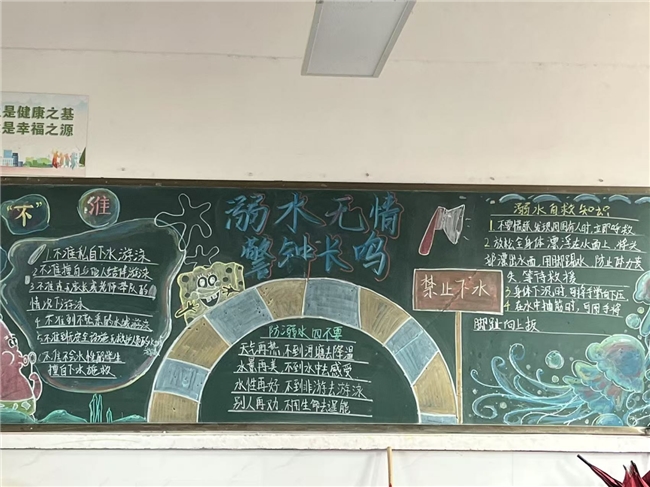 是健康之基
是幸福之源
"不"准
1.不准私自下水游泳
2.不准擅自与他人结伴游泳
3.不准在无家长或老师带队的
情况下游泳
4.不准到不熟悉的水域游泳
5.不准到无安全设施无救援的水
6.不准不会水性的学生
擅自下水施救
溺水无情
警钟长鸣
防溺水四不要
天气再热 不到河塘去降温
水景再美 不到水中去感受
水性再好 不到非游去游泳
别人再劝 不用生命去逞能
禁止下水
溺水自救知识
1.不要慌张,发现周围有人时,立即呼救
2.放松全身体 漂浮在水面上,将头
部漂出水面,用脚踢水,防止体力丧
失,等待救援
3.身体下沉时,可将手掌向下压
4.在水中抽筋时,可用手将
脚趾向上扳